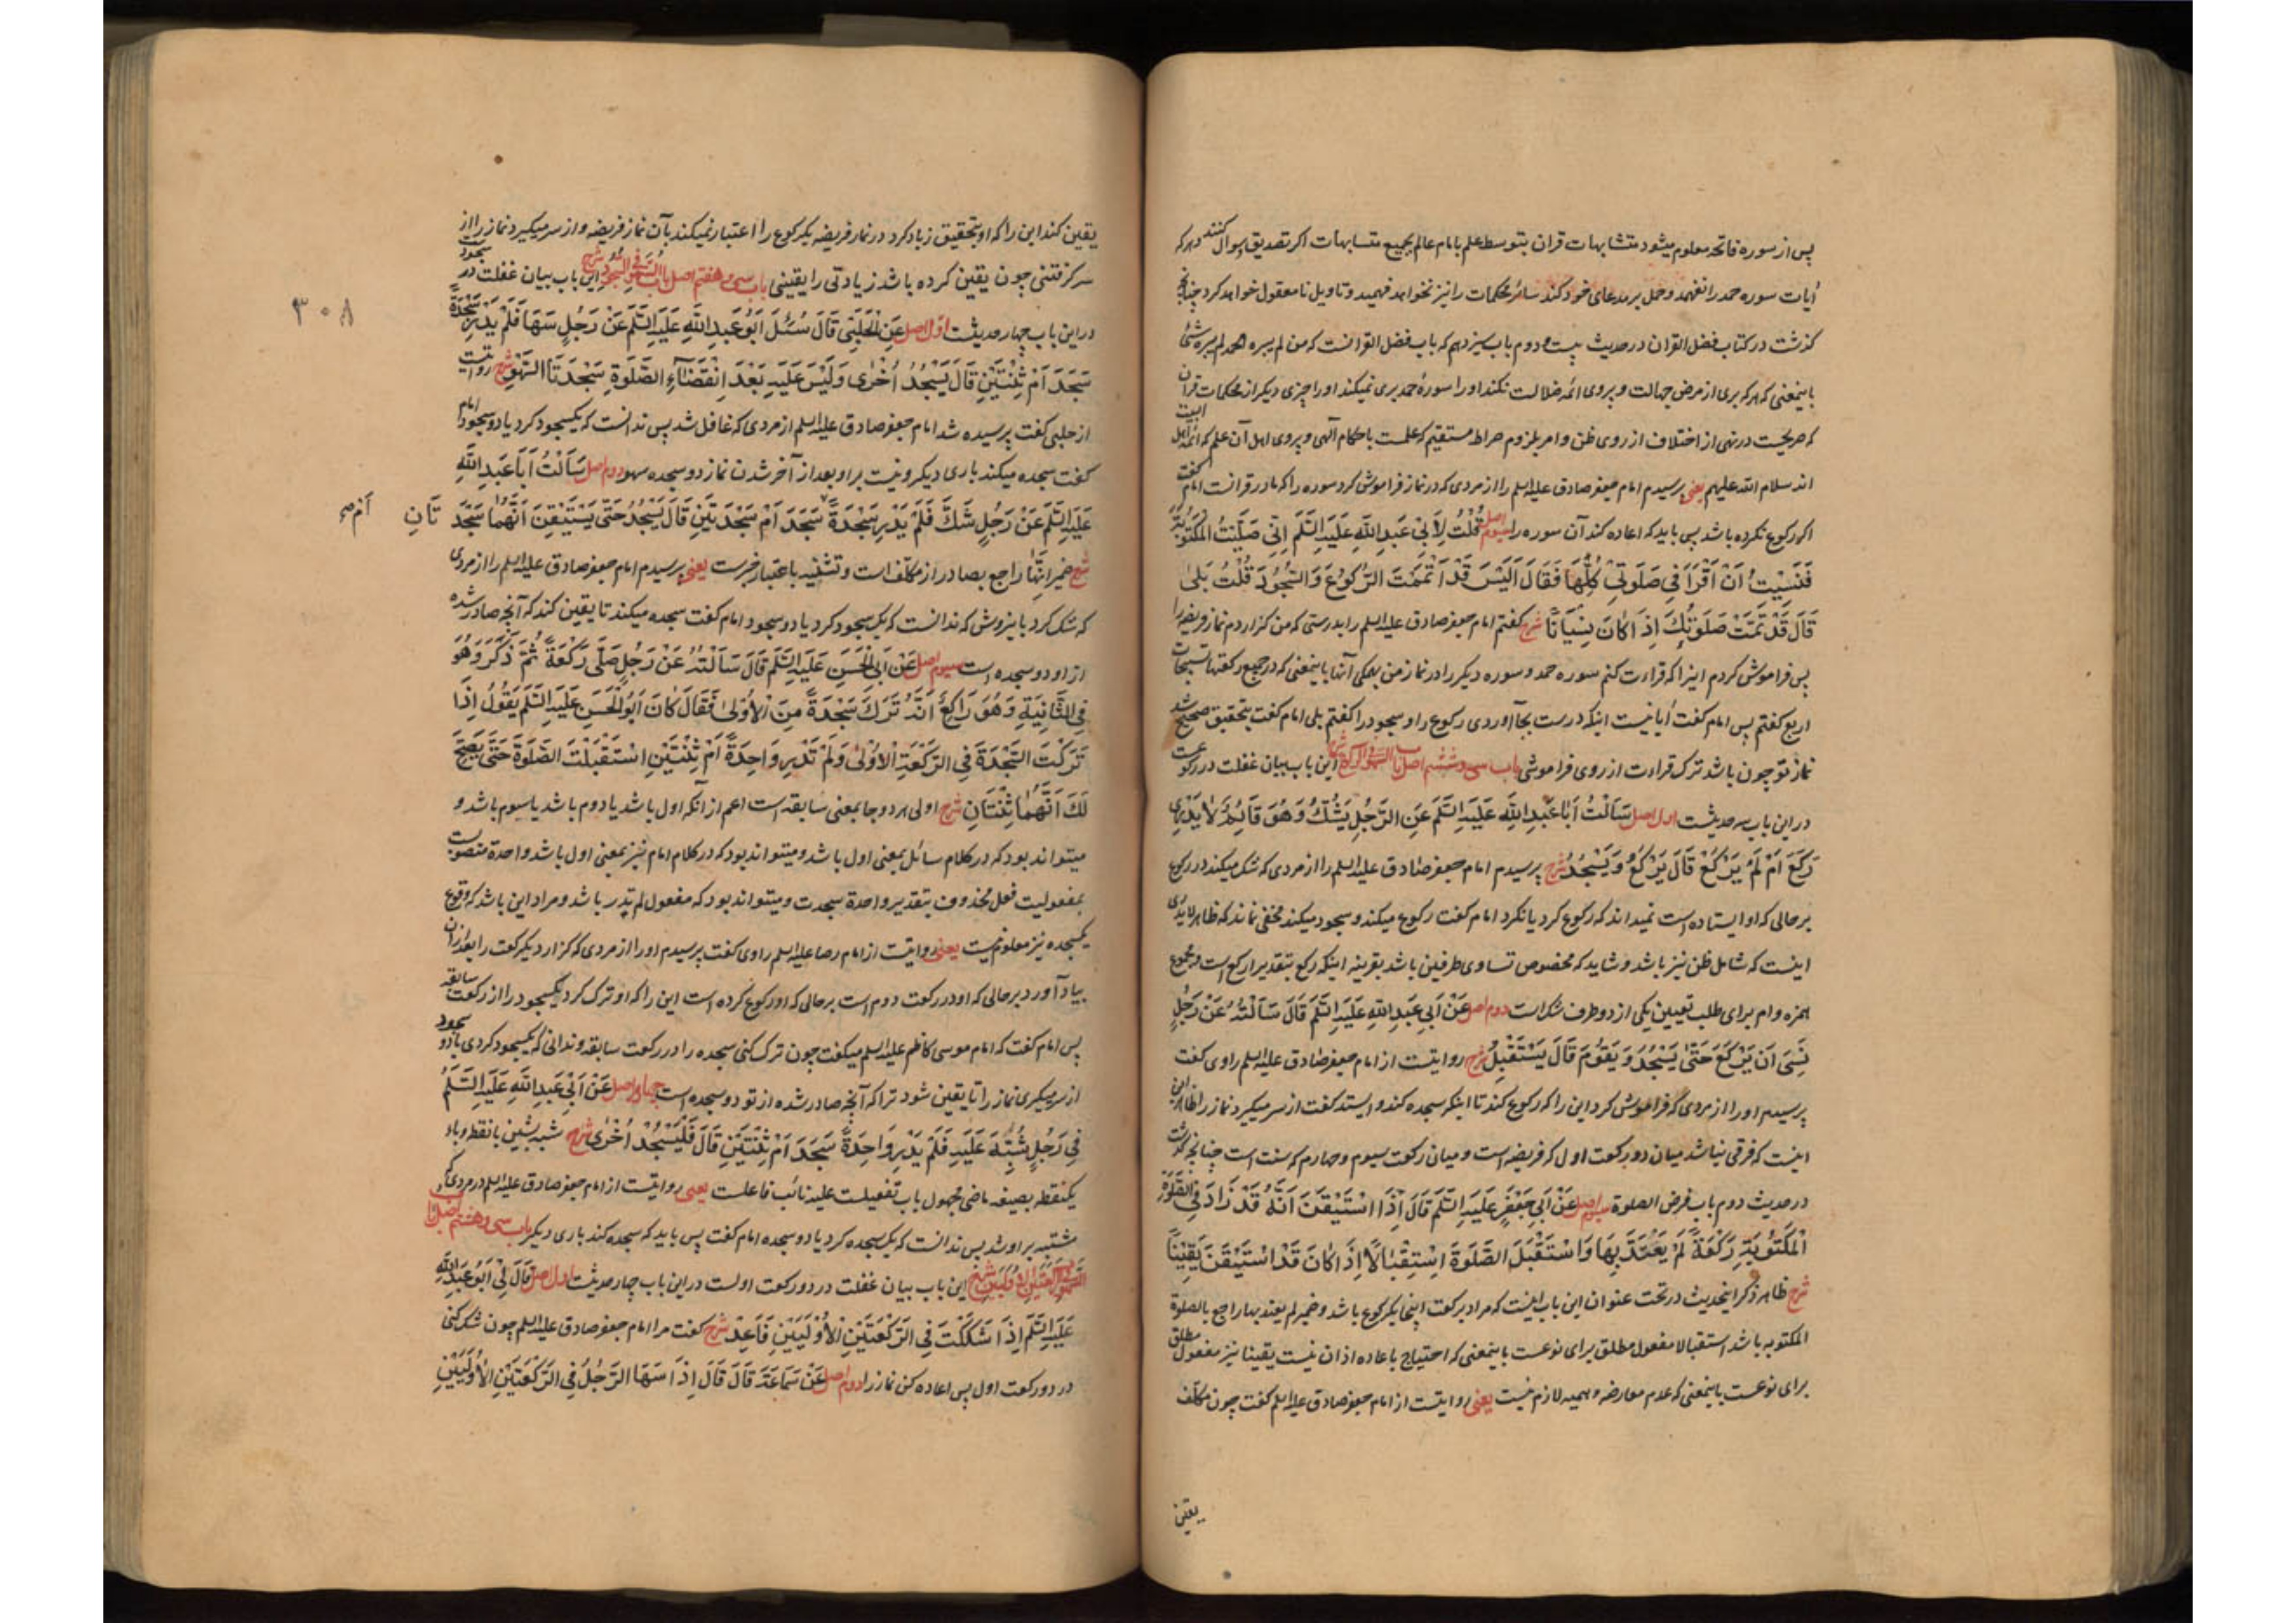 پس از سوره فاتحه معلوم میشود متشابهات قران بتوسط علم بامام عالم بجمیع متشابهات اکر تصدیق اهوال کنند و هرکه
آیات سوره حمد را نفهمد و حمل بر مدعای خود کند سائر محکمات را نیز نخواهد فهمید و تاویل نامعقول خواهد کرد چنانچه
کذشت در کتاب فضل القران در حدیث بیست و دوم باب سیزدهم که باب فضل القرانست که من لم یبره الحمد لم یبره شئ
باینمعنی که هرکه بری از مرض جهالت و پیروی ائمه ضلالت نکند او را سورۀ حمد بری نمیکند او را چیزی دیکر از محکمات قرآن
که صریحست در نهی از اختلاف از روی ظن و امر بلزوم صراط مستقیم که علمست باحکام آلهی و پیروی اهل آن علم که ائمه اهل البیت
اند سلام الله علیهم یعنی پرسیدم امام جعفر صادق علیه السلم را از مردی که در نماز فراموش کرد سوره را که مادر قرانست امام کفت
اکر رکوع نکرده باشد پس باید که اعاده کند آن سوره را سیوم اصل قُلْتُ لِأَبِی عَبدِ اللّٰهِ عَلَیهِ السَّلَم اِنِّی صَلَّیْتُ المَکْتُوبَةَ
فَنَسِیْتُ أَنْ أَقْرَأَ فِی صَلَوتِی کُلِّهَا فَقَالَ أَلَیْسَ قَدْ أَتْمَمْتَ الرُّکُوعَ وَالسُّجُودَ قُلْتُ بَلٰی
قَالَ قَدْ تَمَّتْ صَلَوتُکَ اِذَا کَانَ نِسْیَانًا شرح کفتم امام جعفر صادق علیه السلم را بدرستی که من کزاردم نماز فریضه را
پس فراموش کردم اینرا که قراءت کنم سوره حمد و سوره دیکر را در نماز من همکی آنها باینمعنی که در جمیع رکعتها تسبیحات
اربع کفتم پس امام کفت آیا نیست اینکه درست بجا آوردی رکوع را و سجود را کفتم بلی امام کفت بتحقیق صحیح شد
نماز تو چون باشد ترک قراءت از روی فراموشی باب سی و ششم اصل باب السهو فی الرکوع شرح این باب بیان غفلت در رکوعست
در این باب سه حدیثست اول اصل سَأَلْتُ أَبَا عَبدِ اللّٰهِ عَلَیهِ السَّلَم عَنِ الرَّجُلِ یَشُکُّ وَهُوَ قَائِمٌ لَا یَدْرِی
رَکَعَ أَمْ لَمْ یَرْکَعْ قَالَ یَرْکَعُ وَیَسْجُدُ شرح پرسیدم امام جعفر صادق علیه السلم را از مردی که شک میکند در رکوع
بر حالی که او ایستاده است نمیداند که رکوع کرد یا نکرد امام کفت رکوع میکند و سجود میکند مخفی نماند که ظاهر لا یدری
اینست که شامل ظن نیز باشد و شاید که مخصوص تساوی طرفین باشد بقرینه اینکه رکع بتقدیر ارکع است و مجموع
همزه و ام برای طلب تعیین یکی از دو طرف شکست دوم اصل عَنْ أَبِی عَبدِ اللّٰهِ عَلَیهِ السَّلَم قَالَ سَأَلْتُهُ عَنْ رَجُلٍ
نَسِیَ أَنْ یَرْکَعَ حَتّٰی یَسْجُدَ وَیَقُومَ قَالَ یَسْتَقْبِلُ شرح روایتست از امام جعفر صادق علیه السلم راوی کفت
پرسیدم او را از مردی که فراموش کرد این را که رکوع کند تا اینکه سجده کند و ایستد کفت از سر میکیرد نماز را ظاهر این
اینست که فرقی نباشد میان دو رکعت اول که فریضه است و میان رکعت سیوم و چهارم که سنت است چنانچه کذشت
در حدیث دوم باب فرض الصلوة سیوم اصل عَنْ أَبِی جَعْفَرٍ عَلَیهِ السَّلَم قَالَ إِذَا اسْتَیْقَنَ أَنَّهُ قَدْ زَادَ فِی الصَّلَوةِ
الْمَکْتُوبَةِ رَکْعَةً لَمْ یَعْتَدَّ بِهَا وَاسْتَقْبَلَ الصَّلَوةَ اسْتِقْبَالًا إِذَا کَانَ قَدِ اسْتَیْقَنَ یَقِینًا
شرح ظاهر ذکر اینحدیث در تحت عنوان این باب اینست که مراد برکعت اینجا یک رکوع باشد و ضمیر لم یعتد بها راجع بالصلوة
المکتوبه باشد استقبالا مفعول مطلق برای نوعست باینمعنی که احتیاج باعاده اذان نیست یقینا نیز مفعول مطلق
برای نوعست باینمعنی که عدم معارضه وهمیه لازم نیست یعنی روایتست از امام جعفر صادق علیه السلم کفت چون مکلف
یقین
یقین کند این را که او بتحقیق زیاد کرد در نماز فریضه یک رکوع را اعتبار نمیکند بآن نماز فریضه و از سر میکیرد نماز را از
سر کرفتنی چون یقین کرده باشد زیادتی را یقینی باب سی و هفتم اصل باب السهو فی السجود شرح این باب بیان غفلت در سجودست
در این باب چهار حدیثست اول اصل عَنِ الْحَلَبِیِّ قَالَ سُئِلَ أَبُو عَبدِ اللّٰهِ عَلَیهِ السَّلَم عَنْ رَجُلٍ سَهَا فَلَمْ یَدْرِ سَجْدَةً
سَجَدَ أَمْ ثِنْتَیْنِ قَالَ یَسْجُدُ أُخْرٰی وَلَیْسَ عَلَیهِ بَعْدَ انْقِضَاءِ الصَّلَوةِ سَجْدَتَا السَّهْوِ شرح روایتست
از حلبی کفت پرسیده شد امام جعفر صادق علیه السلم از مردی که غافل شد پس ندانست که یکسجود کرد یا دو سجود امام
کفت سجده میکند باری دیکر و نیست بر او بعد از آخر شدن نماز دو سجده سهو دوم اصل سَأَلْتُ أَبَا عَبدِ اللّٰهِ
عَلَیهِ السَّلَم عَنْ رَجُلٍ شَکَّ فَلَمْ یَدْرِ سَجْدَةً سَجَدَ أَمْ سَجْدَتَیْنِ قَالَ یَسْجُدُ حَتّٰی یَسْتَیْقِنَ أَنَّهُمَا سَجْدَ تَانِ
شرح ضمیر انهما راجع بصادر از مکلف است و تثنیه باعتبار خبرست یعنی پرسیدم امام جعفر صادق علیه السلم را از مردی
که شک کرد باین روش که ندانست که یک سجود کرد یا دو سجود امام کفت سجده میکند تا یقین کند که آنچه صادر شده
از او دو سجده است سیوم اصل عَنْ أَبِی الْحَسَنِ عَلَیهِ السَّلَم قَالَ سَأَلْتُهُ عَنْ رَجُلٍ صَلّٰی رَکْعَةً ثُمَّ ذَکَرَ وَهُوَ
فِی الثَّانِیَةِ وَهُوَ رَاکِعٌ أَنَّهُ تَرَکَ سَجْدَةً مِنَ الْأُولٰی فَقَالَ کَانَ أَبُو الْحَسَنِ عَلَیهِ السَّلَم یَقُولُ إِذَا
تَرَکْتَ السَّجْدَةَ فِی الرَّکْعَةِ الْأُولٰی وَلَمْ تَدْرِ وَاحِدَةً أَمْ ثِنْتَیْنِ اسْتَقْبَلْتَ الصَّلَوةَ حَتّٰی یَصِحَّ
لَکَ أَنَّهُمَا ثِنْتَانِ شرح اولی هر دو جا بمعنی سابقه است اعم از آنکه اول باشد یا دوم باشد یا سیوم باشد و
میتواند بود که در کلام سائل بمعنی اول باشد و میتواند بود که در کلام امام نیز بمعنی اول باشد واحدة منصوبست
بمفعولیت فعل محذوف بتقدیر واحدة سجدت و میتواند بود که مفعول لم تدر باشد و مراد این باشد که وقوع
یکسجده نیز معلوم نیست یعنی روایتست از امام رضا علیه السلم راوی کفت پرسیدم او را از مردی که کزارد یک رکعت را بعد از آن
بیاد آورد بر حالی که او در رکعت دوم است بر حالی که او رکوع کرده است این را که او ترک کرد یکسجود را از رکعت سابقه
پس امام کفت که امام موسی کاظم علیه السلم میکفت چون ترک کنی سجده را در رکعت سابقه و ندانی که یکسجود کردی یا دو سجود
از سر میکیری نماز را تا یقین شود ترا که آنچه صادر شده از تو دو سجده است چهارم اصل عَنْ أَبِی عَبدِ اللّٰهِ عَلَیهِ السَّلَمُ
فِی رَجُلٍ شُبِّهَ عَلَیهِ فَلَمْ یَدْرِ وَاحِدَةً سَجَدَ أَمْ ثِنْتَیْنِ قَالَ فَلْیَسْجُدْ أُخْرٰی شرح شبه بشین بانقطه و باء
یکنقطه بصیغه ماضی مجهول باب تفعیلست علیه نائب فاعلست یعنی روایتست از امام جعفر صادق علیه السلم در مردی که
مشتبه بر او شد پس ندانست که یک سجده کرد یا دو سجده امام کفت پس باید که سجده کند باری دیکر باب سی و هشتم اصل باب
السهو فی الرکعتین الاولیین شرح این باب بیان غفلت در دو رکعت اولست در این باب چهار حدیثست اول اصل قَالَ لِی أَبُو عَبدِ اللّٰهِ
عَلَیهِ السَّلَم إِذَا شَکَکْتَ فِی الرَّکْعَتَیْنِ الْأُولَیَیْنِ فَأَعِدْ شرح کفت مرا امام جعفر صادق علیه السلم چون شک کنی
در دو رکعت اول پس اعاده کن نماز را دوم اصل عَنْ سَمَاعَةَ قَالَ قَالَ إِذَا سَهَا الرَّجُلُ فِی الرَّکْعَتَیْنِ الْأُولَیَیْنِ
۳۰۸